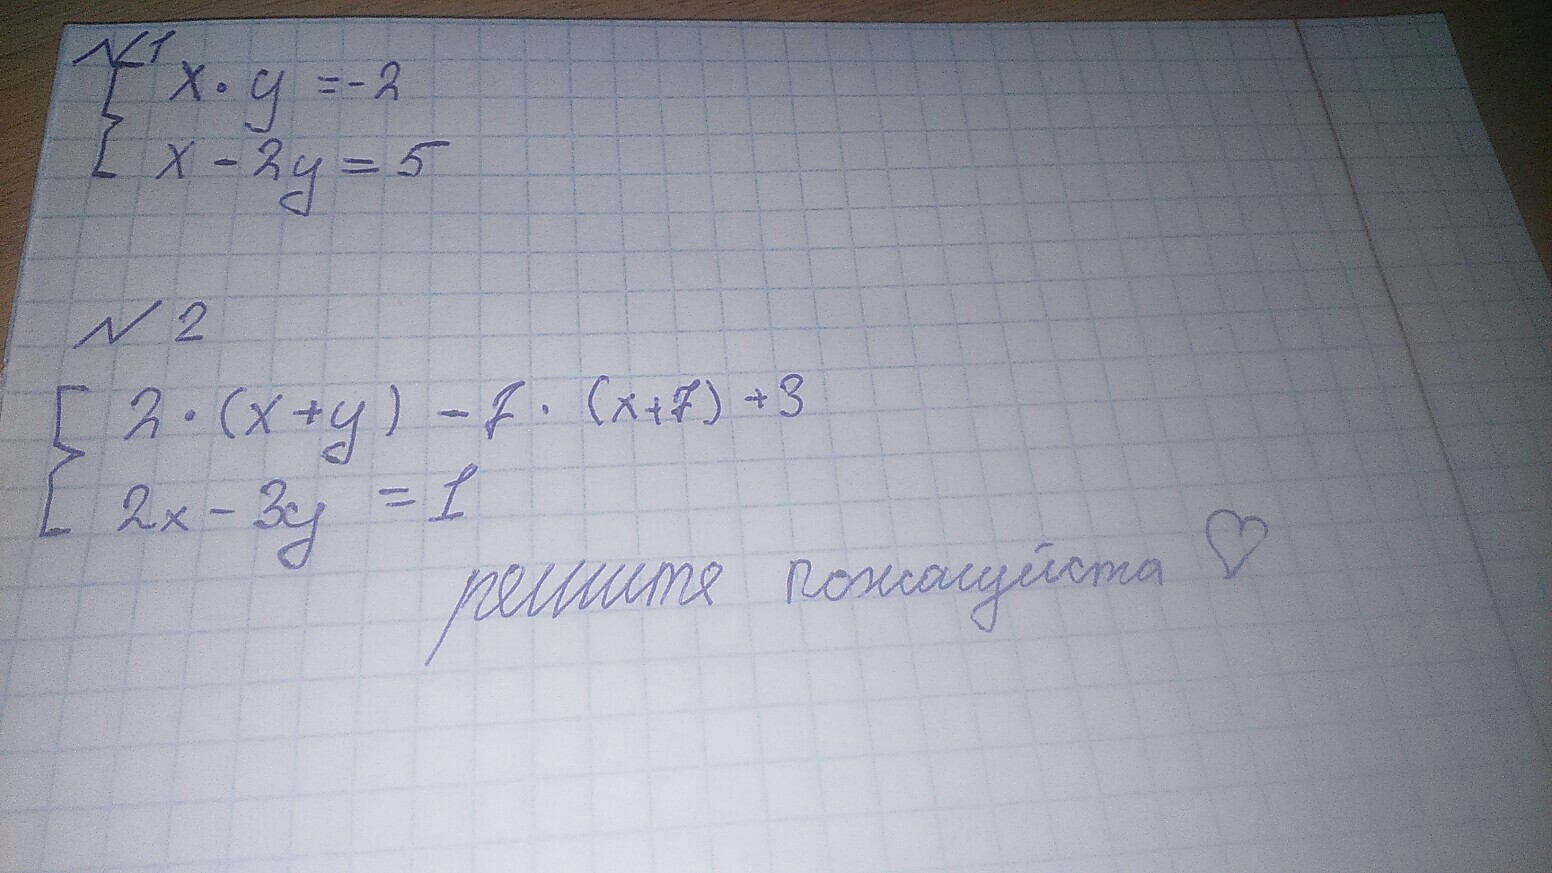 №1
x · y = -2
x - 2y = 5
№ 2
2 · (x+y) - 7 · (x+7) + 3
2x - 3y = 1
решите пожалуйста ♡